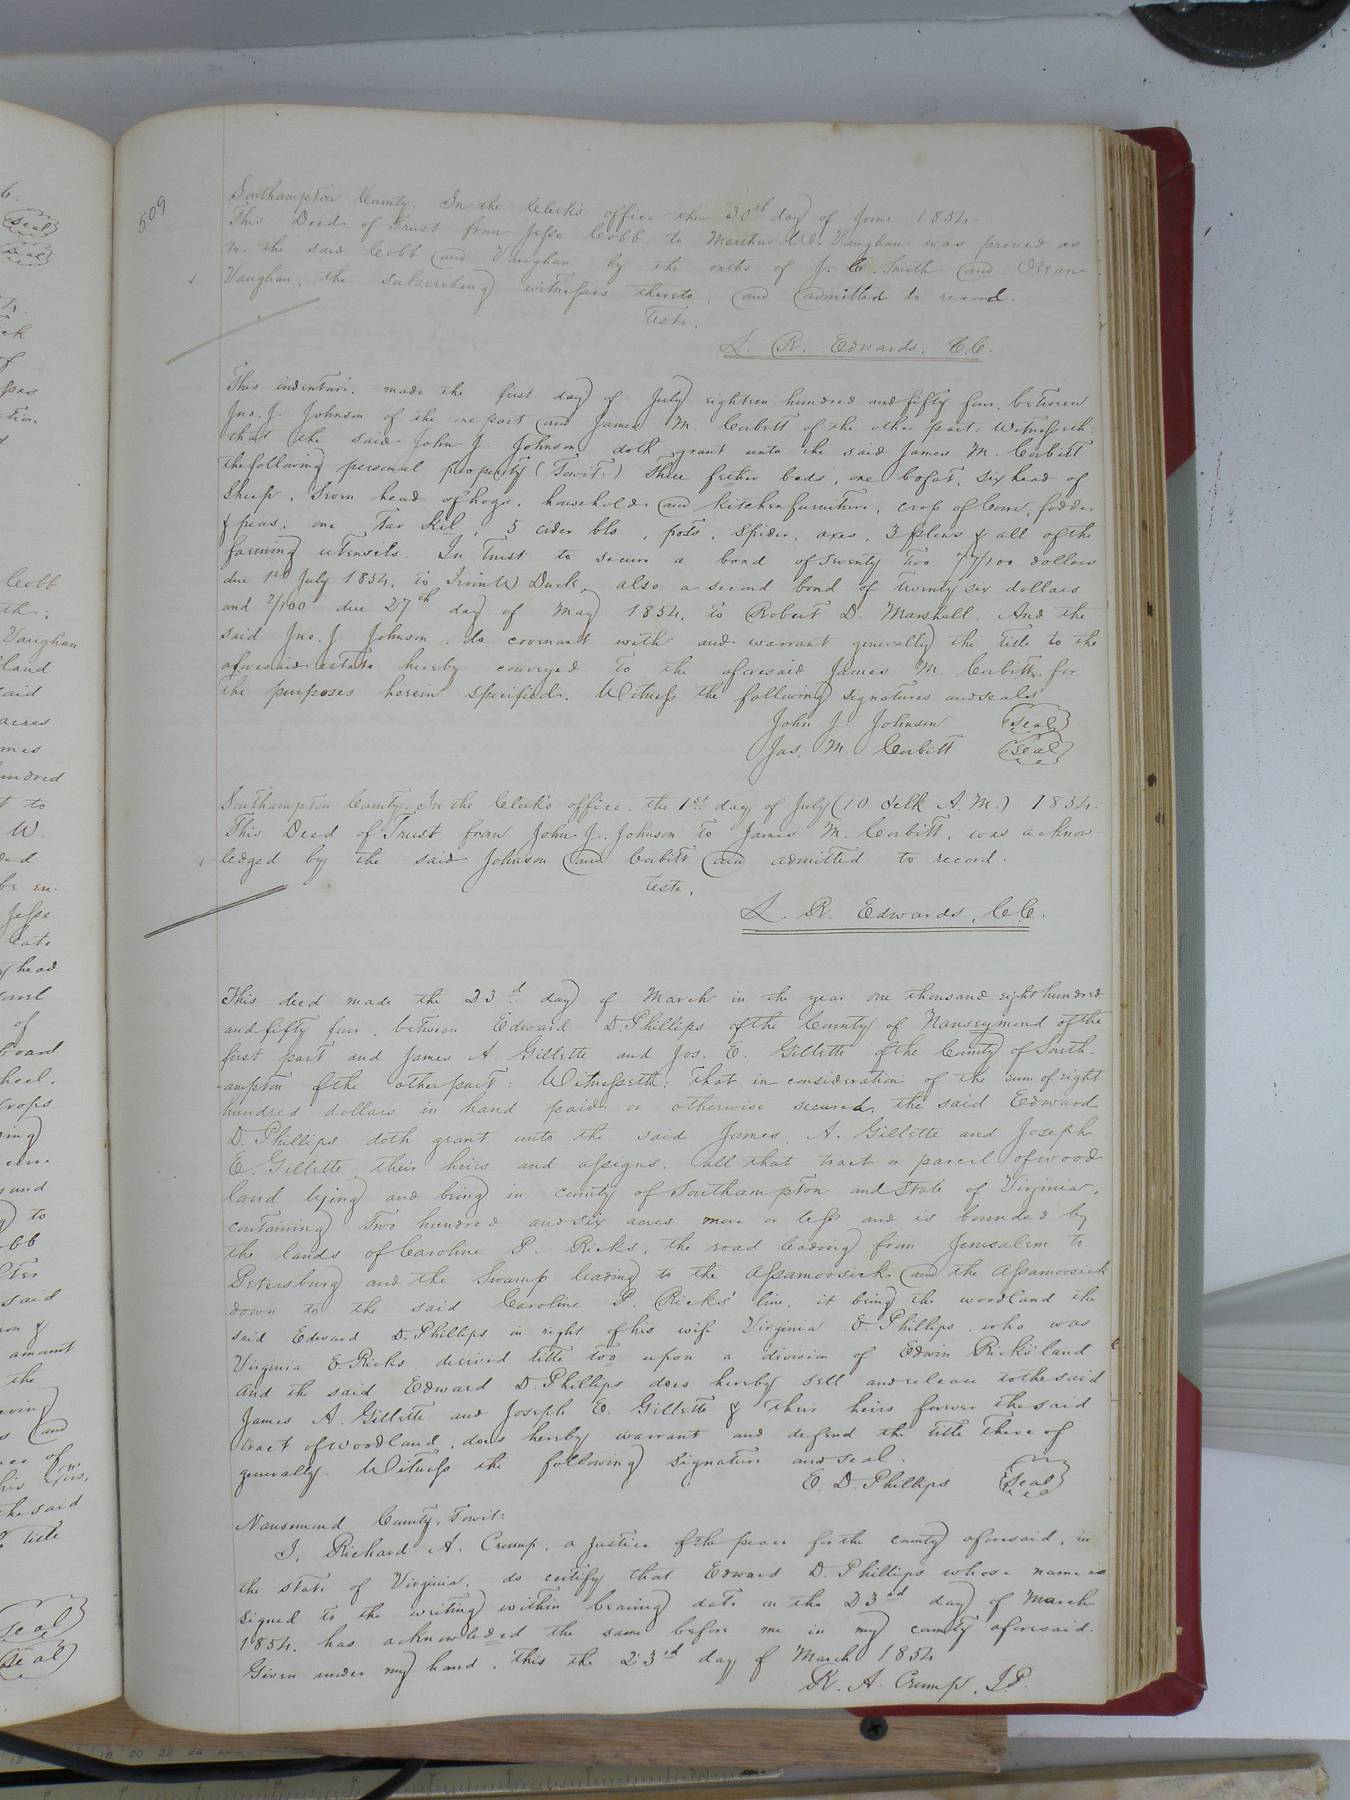 509
Southampton County. In the Clerk's office the 30th day of June 1854.
This Deed of Trust from Jesse Cobb to Matthew W. Vaughan was proved as
to the said Cobb and Vaughan by the oaths of J. C. Smith and
Vaughan, the subscribing witnesses thereto, and admitted to record.
Teste,
L. R. Edwards. C.C.
This indenture, made the first day of July eighteen hundred and fifty four, between
Jno. J. Johnson of the one part and James M. Corbitt of the other part: Witnesseth:
that the said John J. Johnson doth grant unto the said James M. Corbitt
the following personal property (Towit:) Three fether beds, one bofat, six head of
Sheep, head of hogs, household and kitchen furniture, crop of Corn, fodder
& peas, one Tar Kil, 5 cider bls, pots, Spider, axes, 3 plows & all of the
farming utensils. In Trust to secure a bond of Twenty Two 77/100 dollars
due 1st July 1854, to Irvin W Duck, also a second bond of twenty six dollars
and 2/100 due 27th day of May 1854, to Robert D. Marshall. And the
said Jno. J Johnson, do covenant with and warrant generally the title to the
aforesaid estate hereby conveyed to the aforesaid James M. Corbitt for
the purposes herein specified. Witness the following signatures and seals
John J. Johnson (Seal)
Jas. M. Corbitt (Seal)
Southampton County. In the Clerk's office the 1st day of July (10 Oclk A.M.) 1854.
This Deed of Trust from John J. Johnson to James M. Corbitt, was acknow
ledged by the said Johnson and Corbitt and admitted to record.
teste,
L. R. Edwards, C.C.
This deed made the 23d day of March in the year one thousand eight hundred
and fifty four, between Edward D. Phillips of the County of Nanseymond of the
first part and James A. Gillette and Jos. E. Gillette of the County of South-
-ampton of the other part: Witnesseth: That in consideration of the sum of eight
hundred dollars in hand paid or otherwise secured, the said Edward
D. Phillips doth grant unto the said James A. Gillette and Joseph
E. Gillette their heirs and assigns, all that tract or parcel of wood
land lying and being in county of Southampton and State of Virginia,
containing Two hundred and six acres more or less and is bounded by
the lands of Caroline P. Ricks, the road leading from Jerusalem to
Petersburg and the Swamp leading to the Assamoosick and the Assamoosick
down to the said Caroline P. Ricks' line, it being the woodland the
said Edward D. Phillips in right of his wife Virginia E. Phillips who was
Virginia E. Ricks derived title too upon a division of Edwin Ricks' land
And the said Edward D. Phillips does hereby sell and release to the said
James A. Gillette and Joseph E. Gillette & their heirs forever the said
tract of woodland, does hereby warrant and defend the title there of
generally. Witness the following signature and seal.
E. D. Phillips (Seal)
Nansemond County, Towit:
I, Richard A. Crump, a Justice of the peace for the county aforesaid, in
the state of Virginia, do certify that Edward D. Phillips whose name is
signed to the writing within bearing date on the 23rd day of March
1854, has acknowleded the same before me in my county aforesaid.
Given under my hand, this the 23rd day of March 1854
R. A. Crump, J.P.